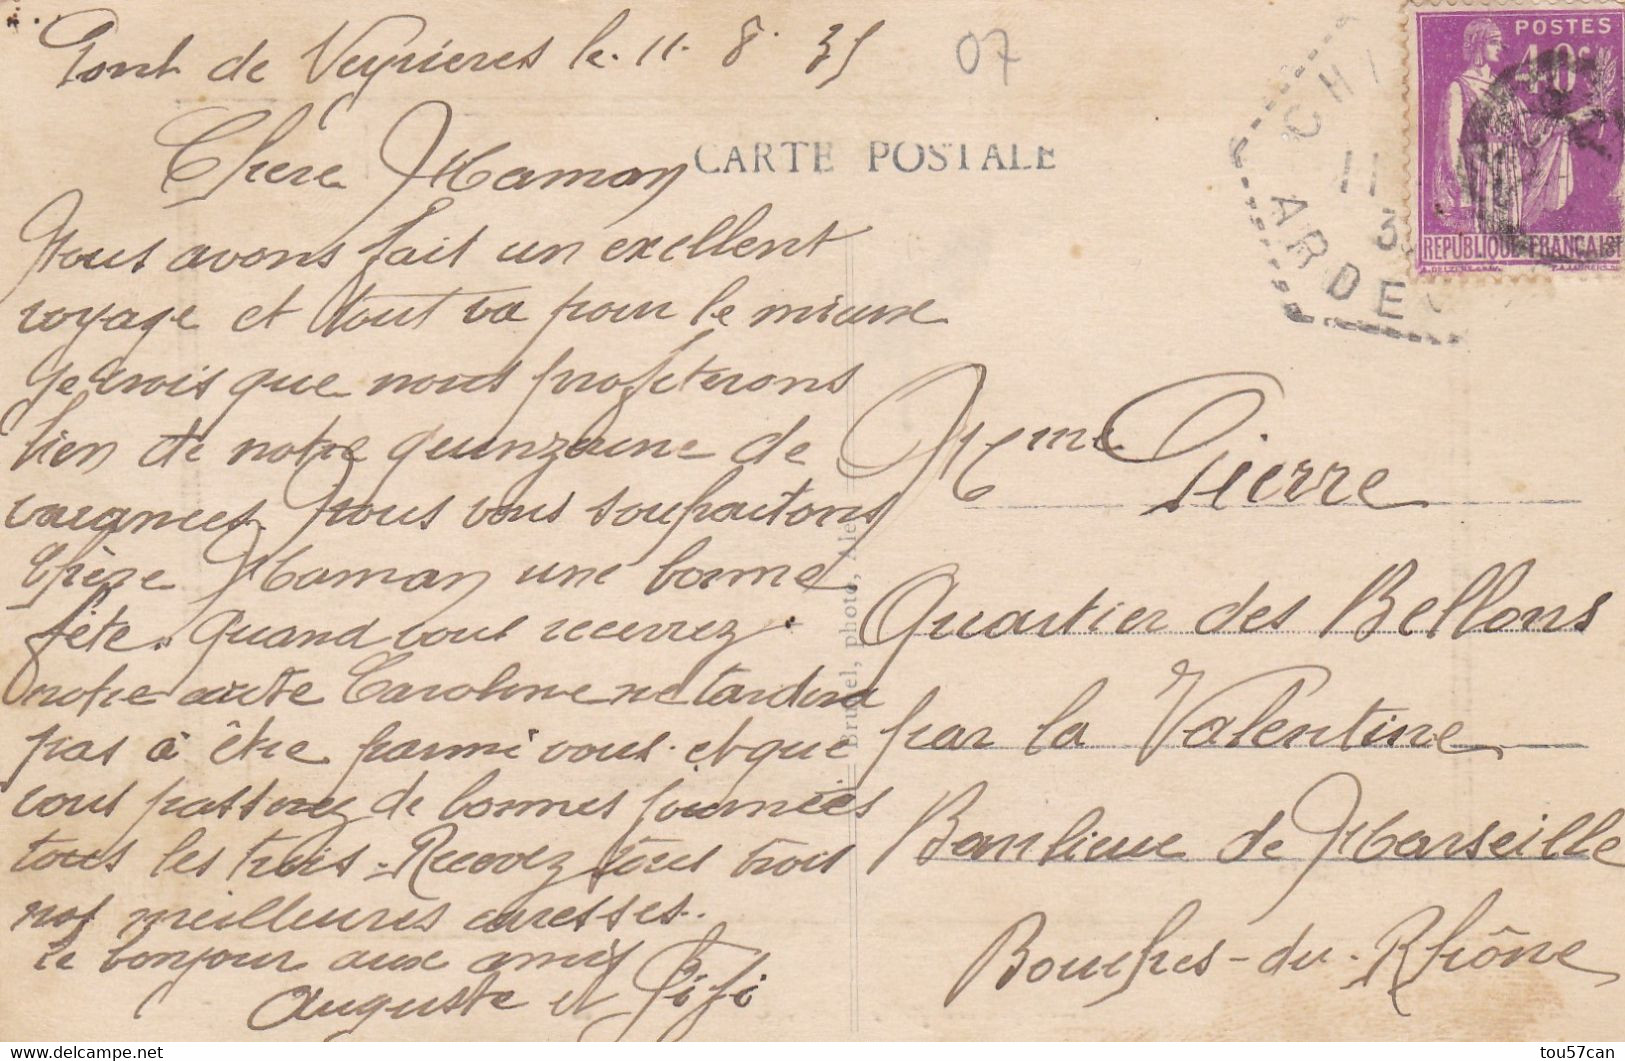 Pont de Veyrières le 11. 8. 35
07
CARTE POSTALE
Chere Maman
Nous avons fait un exellent
voyage et tout va pour le mieux
je crois que nous profiterons
bien de notre quinzaine de
Nous vous souhaitons
chère Maman une bonne
fête. Quand vous recevrez
notre carte Caroline ne tardera
pas à être parmi vous. et que
vous passerez de bonnes journées
tous les trois. Recevez tous trois
nos meilleures caresses.
le bonjour aux amis
Auguste et Fifi
Brunel, photo, Alès
POSTES
40c
REPUBLIQUE FRANÇAISE
CHI
11
3
ARDE
Mme Pierre
Quartier des Bellons
par la Valentine
Banlieue de Marseille
Bouches-du-Rhône
tou57can